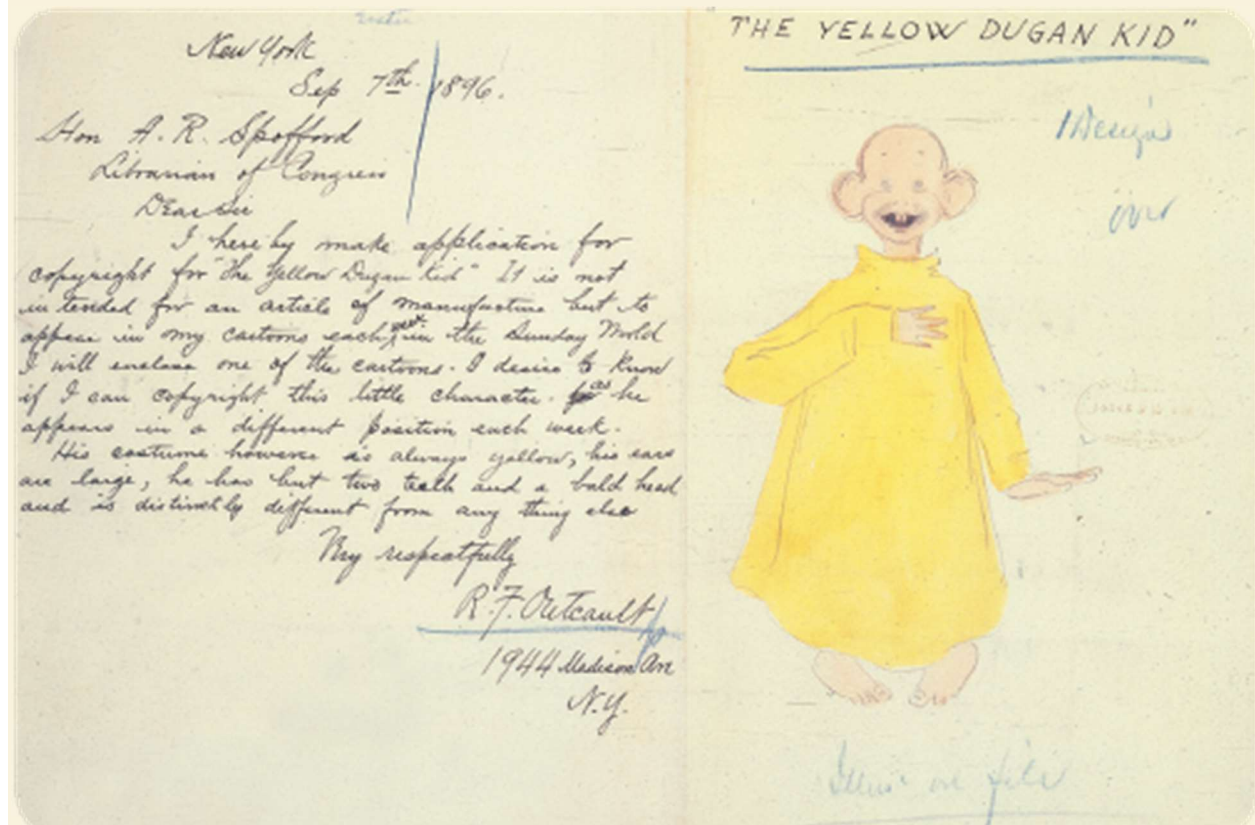 New York
Sep 7th 1896.
Hon A. R. Spofford
Librarian of Congress
Dear Sir
I here by make application for
copyright for "the Yellow Dugan Kid" It is not
in tended for an article of manufacture but to
appear in my cartoons each week in the Sunday World
I will enclose one of the cartoons. I desire to know
if I can copyright this little character. as he
appears in a different position each week.
His costume however is always yellow, his ears
are large, he has but two teeth and a bald head
and is distinctly different from any thing else
Very respectfully
R. F. Outcault
1944 Madison Ave
N.Y.
"THE YELLOW DUGAN KID"
1 Design
over
on file